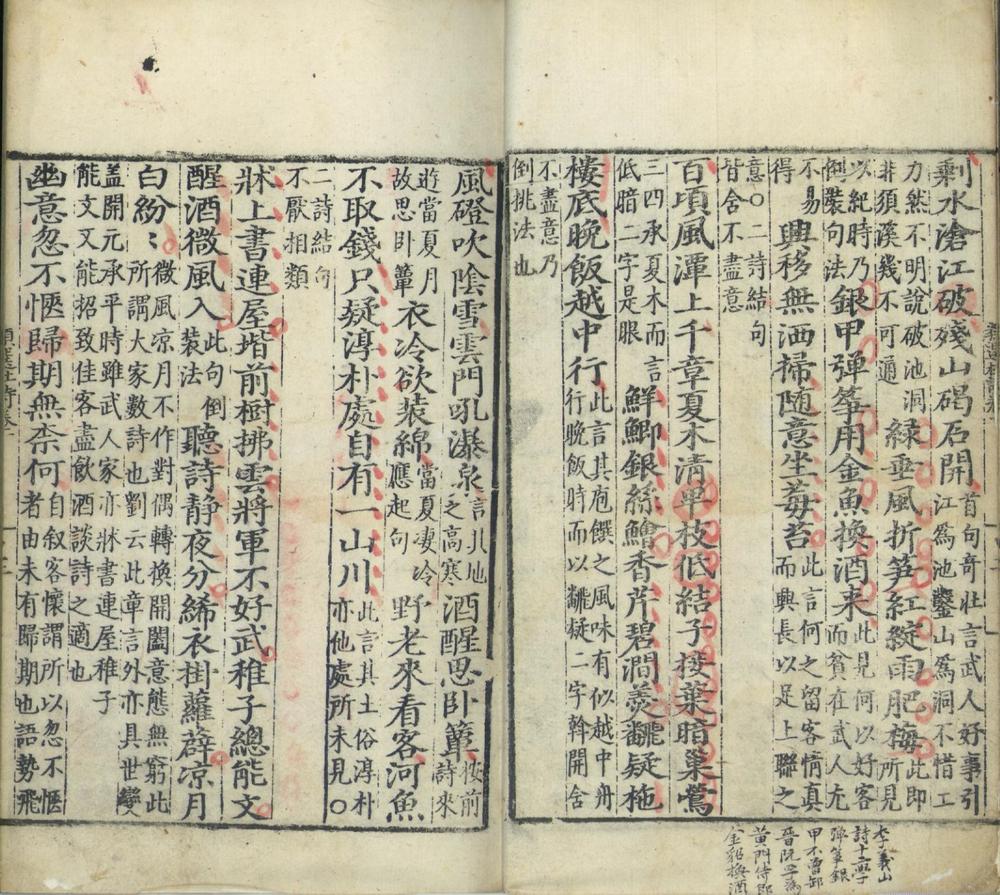 剩水滄江破殘山碣石開首句奇壯言武人好事引
江爲池鑿山爲洞不惜工
力然不明說破池洞
非須溪幾不可通
綠垂風折笋紅綻雨肥梅此即
所見
以紀時乃
倒裝句法
銀甲弹筝用金魚換酒来此見何以好客
而貧在武人尤
不易
得
興移無洒掃随意坐莓苔此言何之留客情真
而興長以足上聯之
意〇二詩結句
皆含不盡意
百頃風潭上千章夏木清卑枝低結子接葉暗巢鶯
三四承夏木而言
低暗二字是眼
鮮鯽銀絲鱠香芹碧澗羹飜疑柂
樓底晚飯越中行此言其庖饌之風味有似越中舟
行晚飯時而以飜疑二字斡開含
不盡意乃
倒挑法也
李義山
詩十二學
彈箏銀
甲不曾卸
晉阮孚爲
黄門侍郎
金貂換酒
風磴吹陰雪雲門吼瀑泉言其地
之高寒
酒醒思卧簟按前
詩來
遊當夏月
故思卧簟
衣冷欲装綿當夏凄冷
應起句
野老來看客河魚
不取錢只疑淳朴處自有一山川此言其土俗淳朴
亦他處所未見〇
二詩結句
不厭相類
牀上書連屋堦前樹拂雲將軍不好武稚子總能文
醒酒微風入此句倒
装法
聽詩静夜分絺衣掛蘿薜凉月
白紛〻微風凉月不作對偶轉換開闔意態無窮此
所謂大家數詩也劉云此章言外亦具世變
盖開元承平時雖武人家亦牀書連屋稚子
能文又能招致佳客盡飲酒談詩之適也
幽意忽不愜歸期無柰何自叙客懷謂所以忽不愜
者由未有歸期也語勢飛